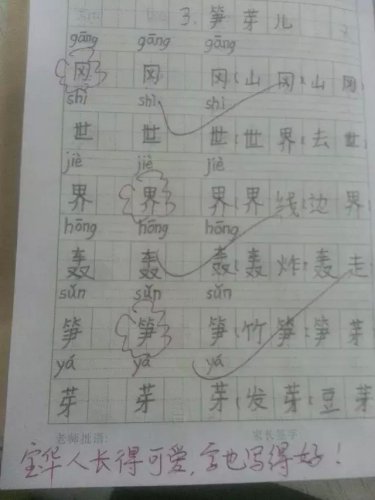 3. 笋芽儿
gāng gāng gāng
冈 冈 冈(山冈)(山冈
shì shì shì
世 世 世(世界)(去世
jiè jiè jiè
界 界 界(界线)(边界
hōng hōng hōng
轰 轰 轰(轰炸)(轰走
sǔn sǔn sǔn
笋 笋 笋(竹笋)(笋芽
yá yá yá
芽 芽 芽(发芽)(豆芽
老师批语: 家长签字:
宝华人长得可爱,字也写得好!